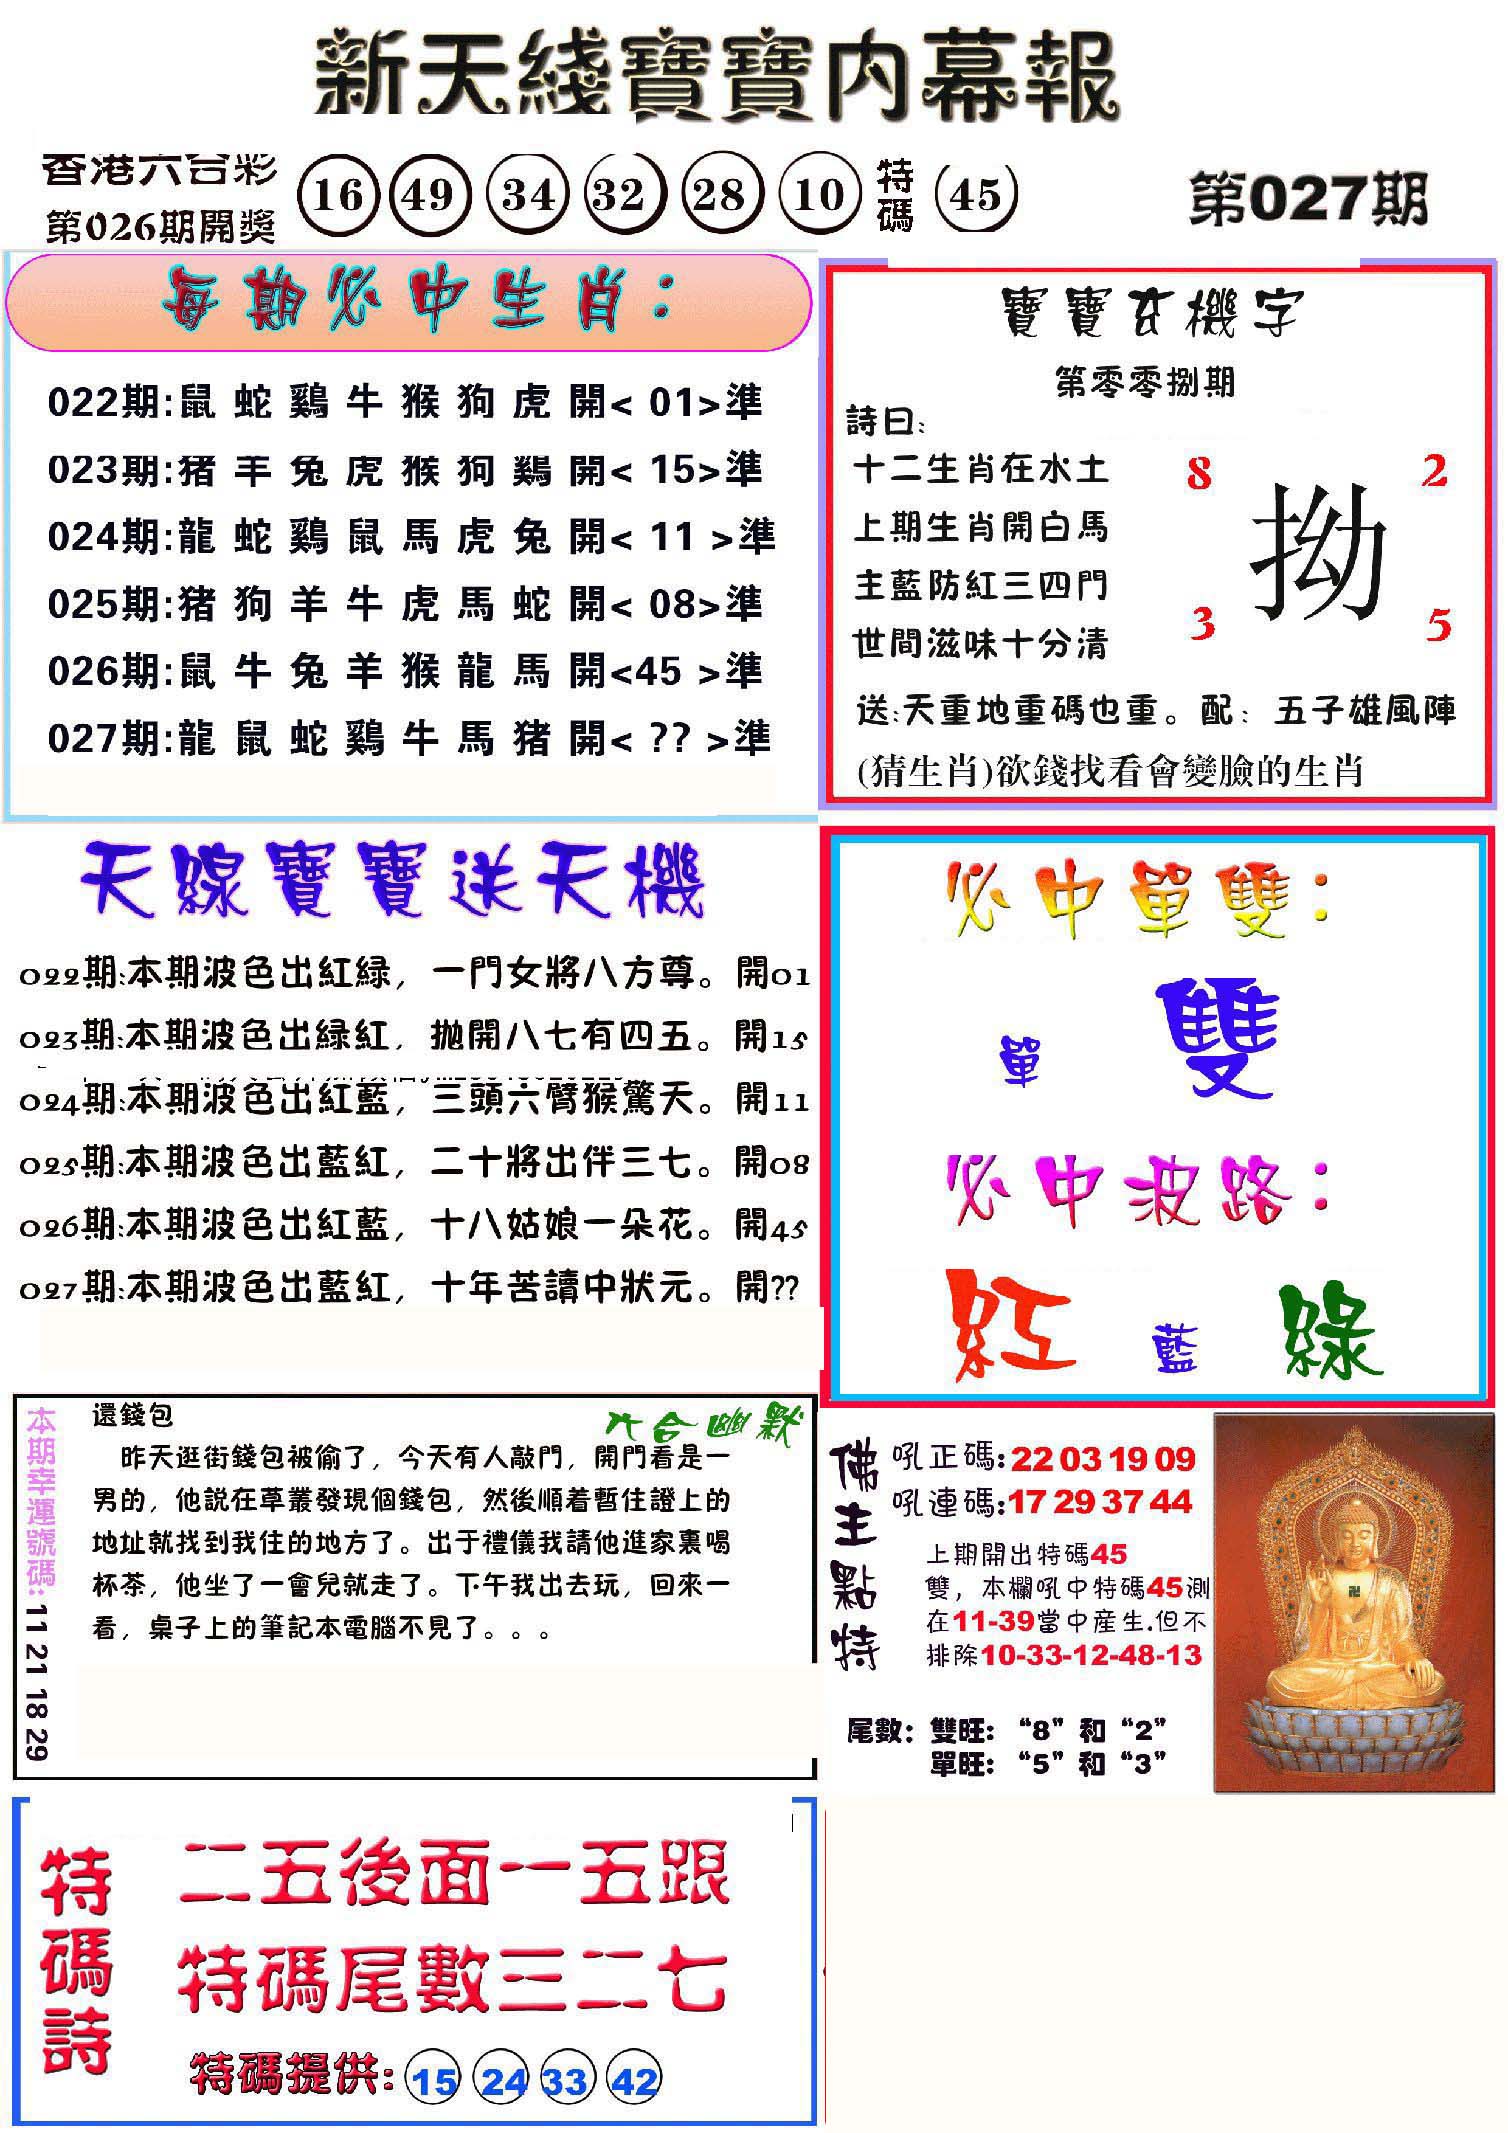 新天綫寶寶内幕報
香港六合彩
第026期開獎
16 49 34 32 28 10 特碼 45
第027期
每期必中生肖：
022期:鼠 蛇 鷄 牛 猴 狗 虎 開< 01>準
023期:猪 羊 兔 虎 猴 狗 鷄 開< 15>準
024期:龍 蛇 鷄 鼠 馬 虎 兔 開< 11 >準
025期:猪 狗 羊 牛 虎 馬 蛇 開< 08>準
026期:鼠 牛 兔 羊 猴 龍 馬 開<45 >準
027期:龍 鼠 蛇 鷄 牛 馬 猪 開< ?? >準
寶寶玄機字
第零零捌期
詩曰:
十二生肖在水土
上期生肖開白馬
主藍防紅三四門
世間滋味十分清
8 2
拗
3 5
送:天重地重碼也重。配: 五子雄風陣
(猜生肖)欲錢找看會變臉的生肖
天線寶寶送天機
022期:本期波色出紅緑, 一門女將八方尊。開01
023期:本期波色出緑紅, 拋開八七有四五。開15
024期:本期波色出紅藍, 三頭六臂猴驚天。開11
025期:本期波色出藍紅, 二十將出伴三七。開08
026期:本期波色出紅藍, 十八姑娘一朵花。開45
027期:本期波色出藍紅, 十年苦讀中狀元。開??
必中單雙：
單 雙
必中波路：
紅 藍 綠
本期幸運號碼:11 21 18 29
六合幽默
還錢包
昨天逛街錢包被偷了, 今天有人敲門, 開門看是一
男的, 他説在草叢發現個錢包, 然後順着暫住證上的
地址就找到我住的地方了。出于禮儀我請他進家裏喝
杯茶, 他坐了一會兒就走了。下午我出去玩, 回來一
看, 桌子上的筆記本電腦不見了。。。
佛主點特
吼正碼:22 03 19 09
吼連碼:17 29 37 44
上期開出特碼45
雙, 本欄吼中特碼45測
在11-39當中産生.但不
排除10-33-12-48-13
尾數: 雙旺: “8”和“2”
單旺: “5”和“3”
特碼詩
二五後面一五跟
特碼尾數三二七
特碼提供: 15 24 33 42